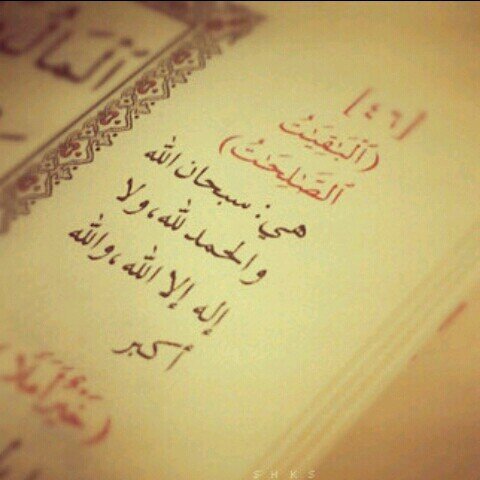 ٱلْمَالُ
[٤٦]
(ٱلْبَٰقِيَٰتُ
ٱلصَّٰلِحَٰتُ)
هي: سبحان الله
والحمد لله، ولا
إله إلا الله، والله
أكبر
(خَيْرٌ أَمَلًا
SHKS